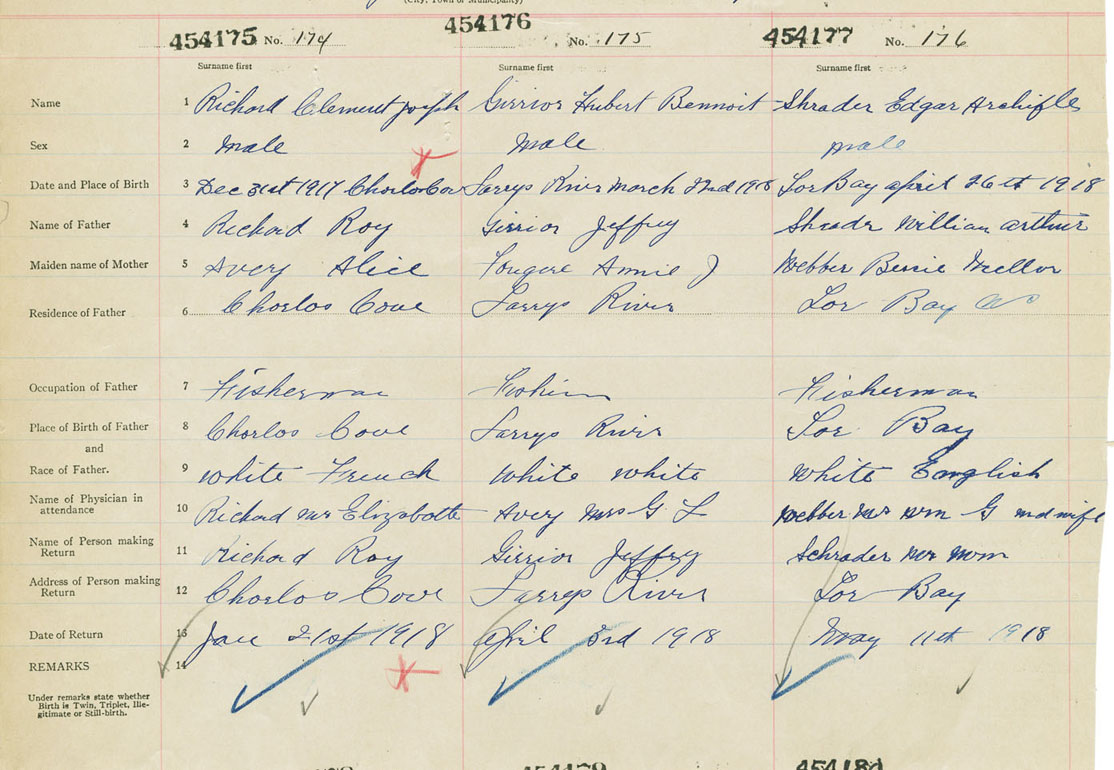 (City, Town or Municipality)
454175 No. 174 454176 No. 175 454177 No. 176
Surname first Surname first Surname first
Name 1 Richard Clement Joseph Girrior Hubert Bennoit Shrader Edgar
Sex 2 Male Male male
Date and Place of Birth 3 Dec 31st 1917 Charlos Cove Larrys River March 22nd 1918 Lor Bay april 26th 1918
Name of Father 4 Richard Roy Girrior Jeffrey Shradr William arthur
Maiden name of Mother 5 Avery Alice Fougere Annie J Webber Bessie
Residence of Father 6 Charlos Cove Larrys River Lor Bay
Occupation of Father 7 Fisherman Fisherman
Place of Birth of Father 8 Charlos Cove Larrys River Lor Bay
and
Race of Father. 9 White French White White White English
Name of Physician in
attendance 10 Richard mrs Avery Mrs G L Webber Mrs Wm G midwife
Name of Person making
Return 11 Richard Roy Girrior Jeffrey Schrader Mr Wm
Address of Person making
Return 12 Charlos Cove Larrys River Lor Bay
Date of Return 13 Jan 21st 1918 April 3rd 1918 May 11th 1918
REMARKS 14
Under remarks state whether
Birth is Twin, Triplet, Ille-
gitimate or Still-birth.